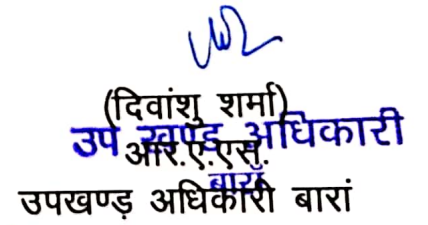 (दिवांशु शर्मा)
उप खण्ड अधिकारी
आर.ए.एस.
बाराँ
उपखण्ड़ अधिकारी बारां